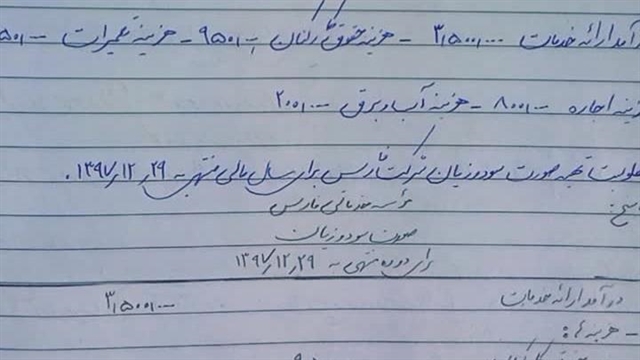 درآمد ارائه خدمات ۳٫۵۰۰٫۰۰۰ - هزینه حقوق کارکنان ۹۵۰٫۰۰۰ - هزینه تعمیرات
هزینه اجاره ۸۰۰٫۰۰۰ - هزینه آب و برق ۲۰۰٫۰۰۰
مطلوبست تهیه صورت سود و زیان شرکت پارس برای سال مالی منتهی به ۱۳۹۷٫۱۲٫۲۹.
پاسخ:
موسسه خدماتی پارس
صورت سود و زیان
برای دوره منتهی به ۱۳۹۷٫۱۲٫۲۹
درآمد ارائه خدمات ۳٫۵۰۰٫۰۰۰
- هزینه ها: